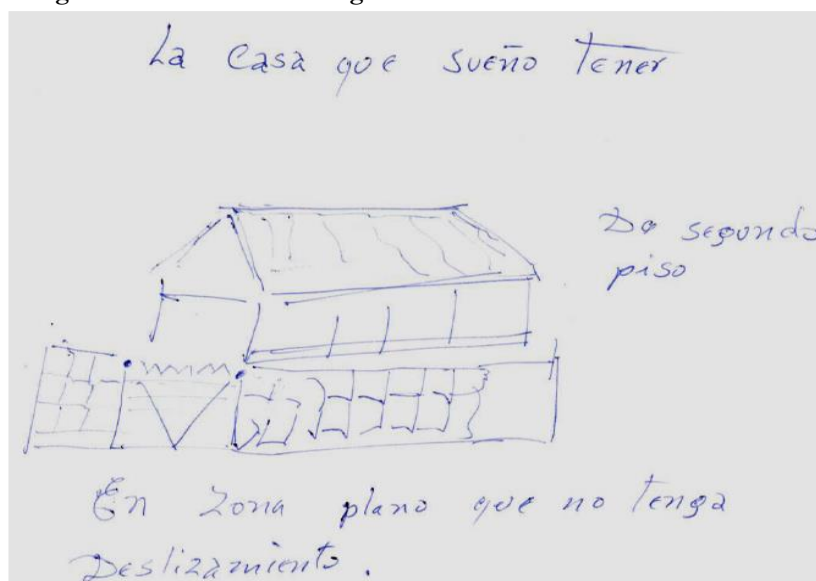 La Casa que sueño Tener
De segundo
piso
En zona plano que no tenga
Deslizamiento.